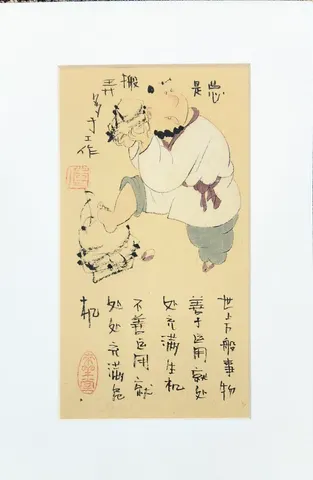 是
搬
弄
工作
世上万般事物
善于运用就处
处充满生机
不善运用就
处处充满危
机